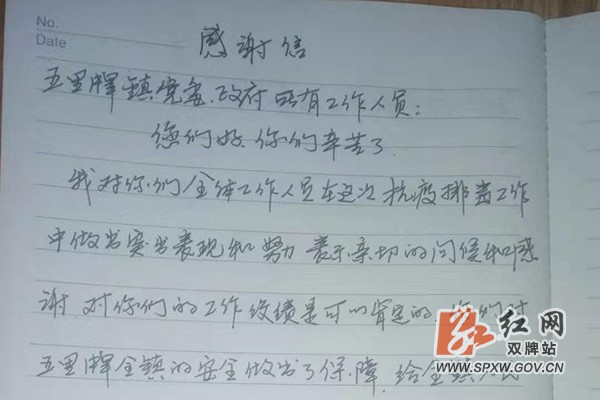 No.
Date
感谢信
五里牌镇党委、政府所有工作人员：
您们好、你们辛苦了
我对你们全体工作人员在这次抗疫排查工作
中做出突出表现和努力 表示亲切的问候和感
谢 对你们的工作成绩是可以肯定的 你们对
五里牌全镇的安全做出了保障，给全镇人民
红网
双牌站
WWW.SPXW.GOV.CN